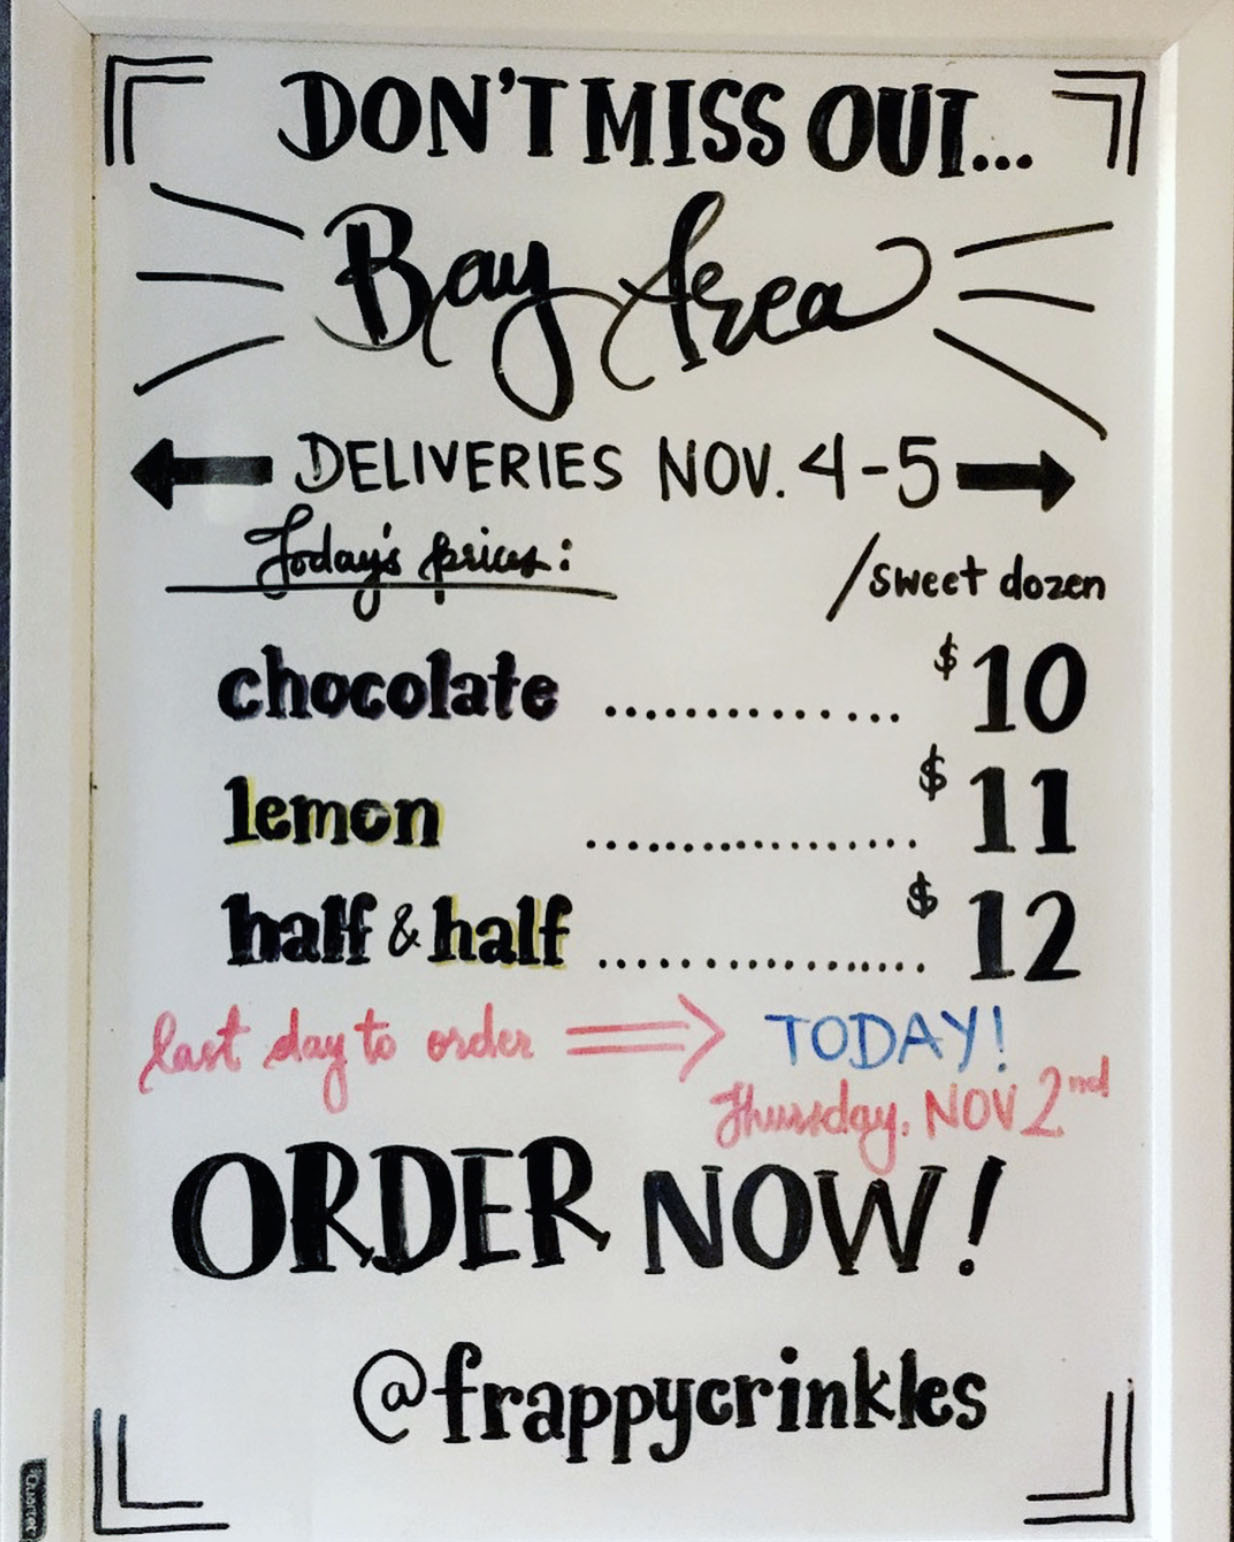 DON'T MISS OUT...
Bay Area
DELIVERIES NOV. 4-5
Today's prices: /sweet dozen
chocolate .............. $10
lemon .................. $11
half & half .................. $12
last day to order TODAY!
Thursday, NOV 2nd
ORDER NOW!
@frappycrinkles
Quartet